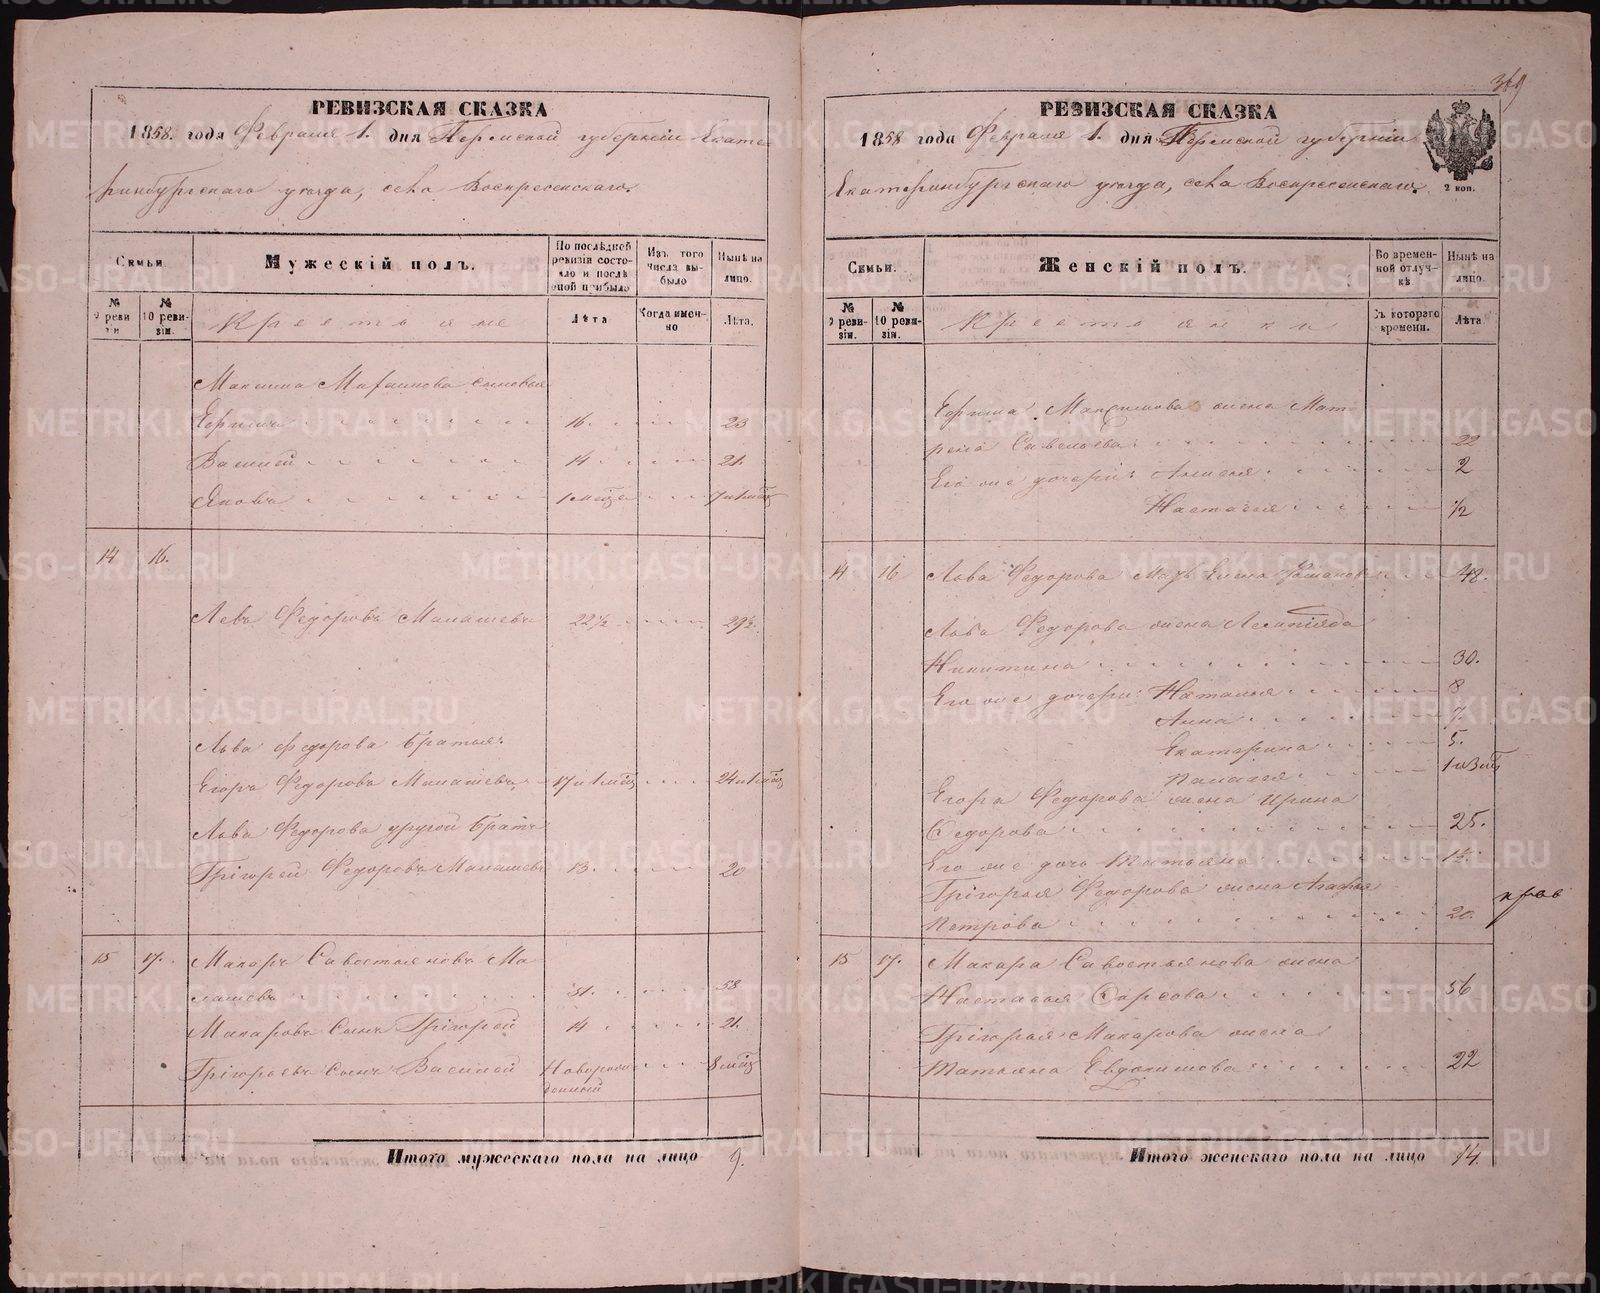 РЕВИЗСКАЯ СКАЗКА
1858. года Февраля 1. дня Пермской губернiи Екате
ринбургскаго уезда, села Воскресенскаго.
Семьи.
Мужескiй полъ.
По послѣдней ревизiи состояло и послѣ оной прибыло
Изъ того числа выбыло
Нынѣ на лицо.
№ 9 ревизiи
№ 10 ревизiи.
Крестьяне
Лѣта
Когда именно
Лѣта.
Максима сыновья
Ефимъ 16. 23
Василей 14. 21.
Яковъ 1 мѣсяца 7 и 1 мѣс
14 16.
Левъ Федоровъ Малашевъ 22½ 29½.
Льва Федорова братья:
Егоръ Федоровъ Малашевъ 17 и 1 мѣс 24 и 1 мѣс
Льва Федорова другой братъ
Грiгорей Федоровъ Малашевъ 13. 20
15 17. Макаръ Савостьяновъ Ма
лашевъ 51. 58
Макаровъ сынъ Грiгорей 14 21.
Грiгорьевъ сынъ Василей Новорож 8 мѣс
денный
Итого мужескаго пола на лицо 9.
369
РЕВИЗСКАЯ СКАЗКА
1858 года Февраля 1. дня Пермской губернiи
Екатеринбургскаго уезда, села Воскресенскаго.
2 коп.
Семьи.
Женскiй полъ.
Во временной отлучкѣ
Нынѣ на лицо.
№ 9 ревизiи.
№ 10 ревизiи.
Крестьянки
Съ котораго времени.
Лѣта
Ефима Максимова жена Мат
рена Савельева 22
Его же дочери: 2
Настасья ½
14 16 Льва Федорова мать Елена 48.
Льва Федорова жена
Никитина 30.
Его же дочери: Наталья 8
Анна 7.
Екатерина 5.
Палагея 1 и 3 мѣс
Егора Федорова жена Ирина
Федорова 25.
Его же дочь Татьяна 1½.
Грiгорья Федорова жена Агафья
Петрова 20.
15 17. Макара Савостьянова жена
Настасья 56
Грiгорья Макарова жена
Татьяна Евдокимова 22
Итого женскаго пола на лицо 14.
METRIKI.GASO-URAL.RU